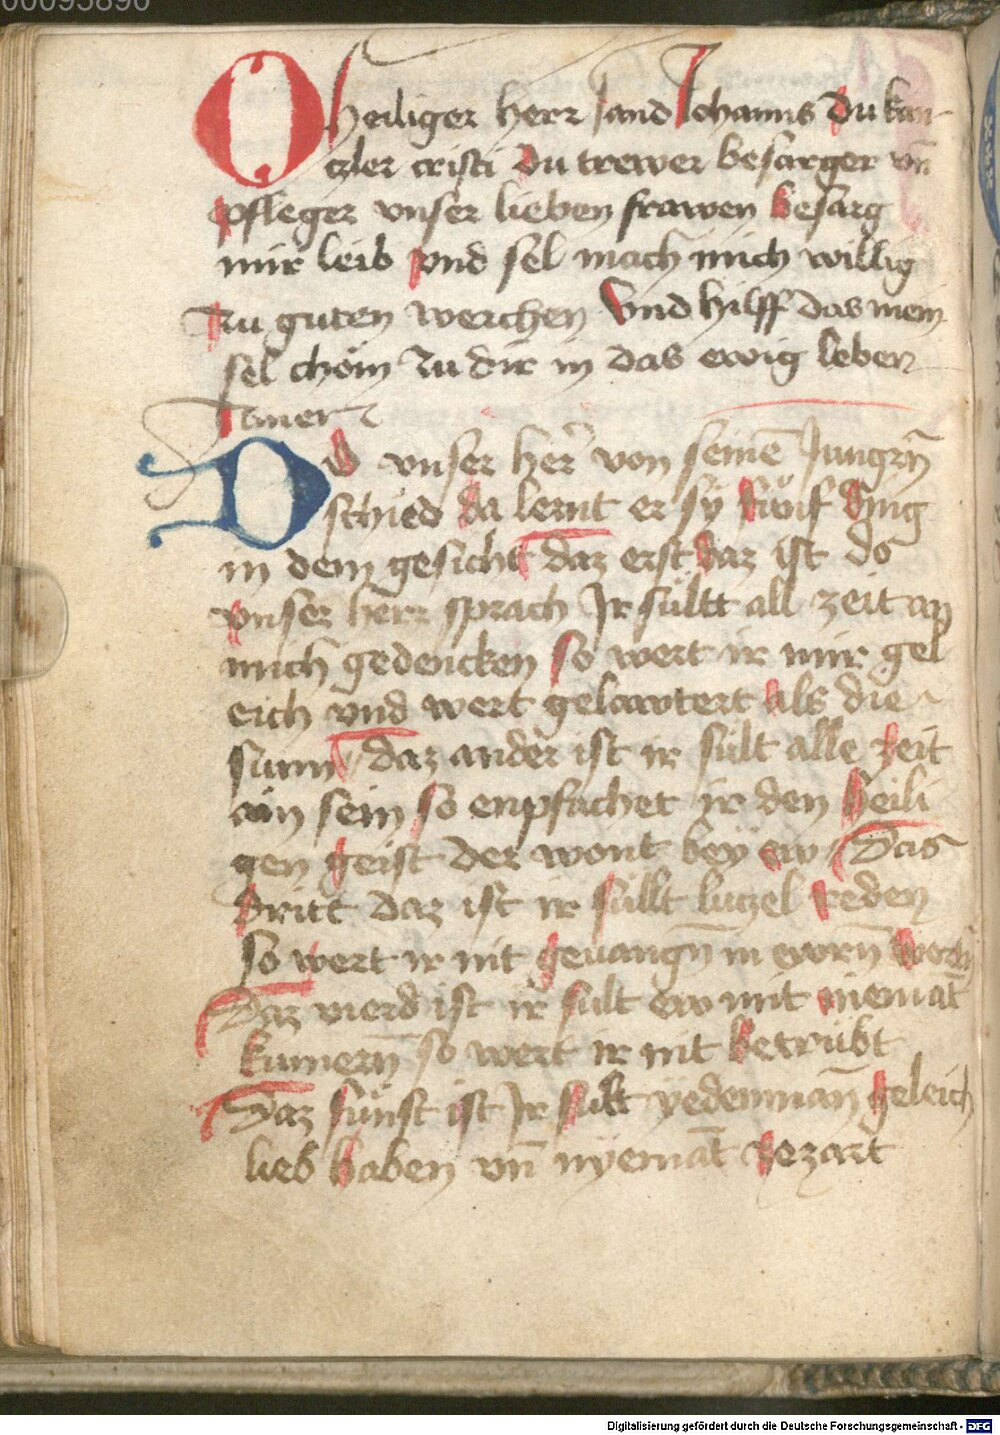 00095890
O heiliger herr sand Johanns du kan
czler cristi du trewer besarger vn̄
pfleger vnser lieben frawen besarg
mir leib vnd sel mach mich willig
zu guten werchen Vnd hilff das mein
sel chöm zu dir in das ewig leben
Amen
Do vnser her von seinē Jungrn̄
schied da lernt er sy fünf ding
in dem gesicht daz erst daz ist do
vnser herr sprach Ir sültt all zeit an
mich gedencken so wert ir mir gel
eich vnd wert gelawtert als die
sunn daz ander ist ir sült alle zeit
ain sein so enpfachet ir den heili
gen geist der wont bey ew Das
dritt daz ist ir süllt luczel reden
so wert ir nit geuangn̄ in ewrn̄
Daz vierd ist ir sult ew mit niemāt
kumern̄ so wert ir nit betrübt
Daz fünft ist Ir sult yedenman̄ geleich
lieb haben vn̄ nyemāt zezart
Digitalisierung gefördert durch die Deutsche Forschungsgemeinschaft - DFG